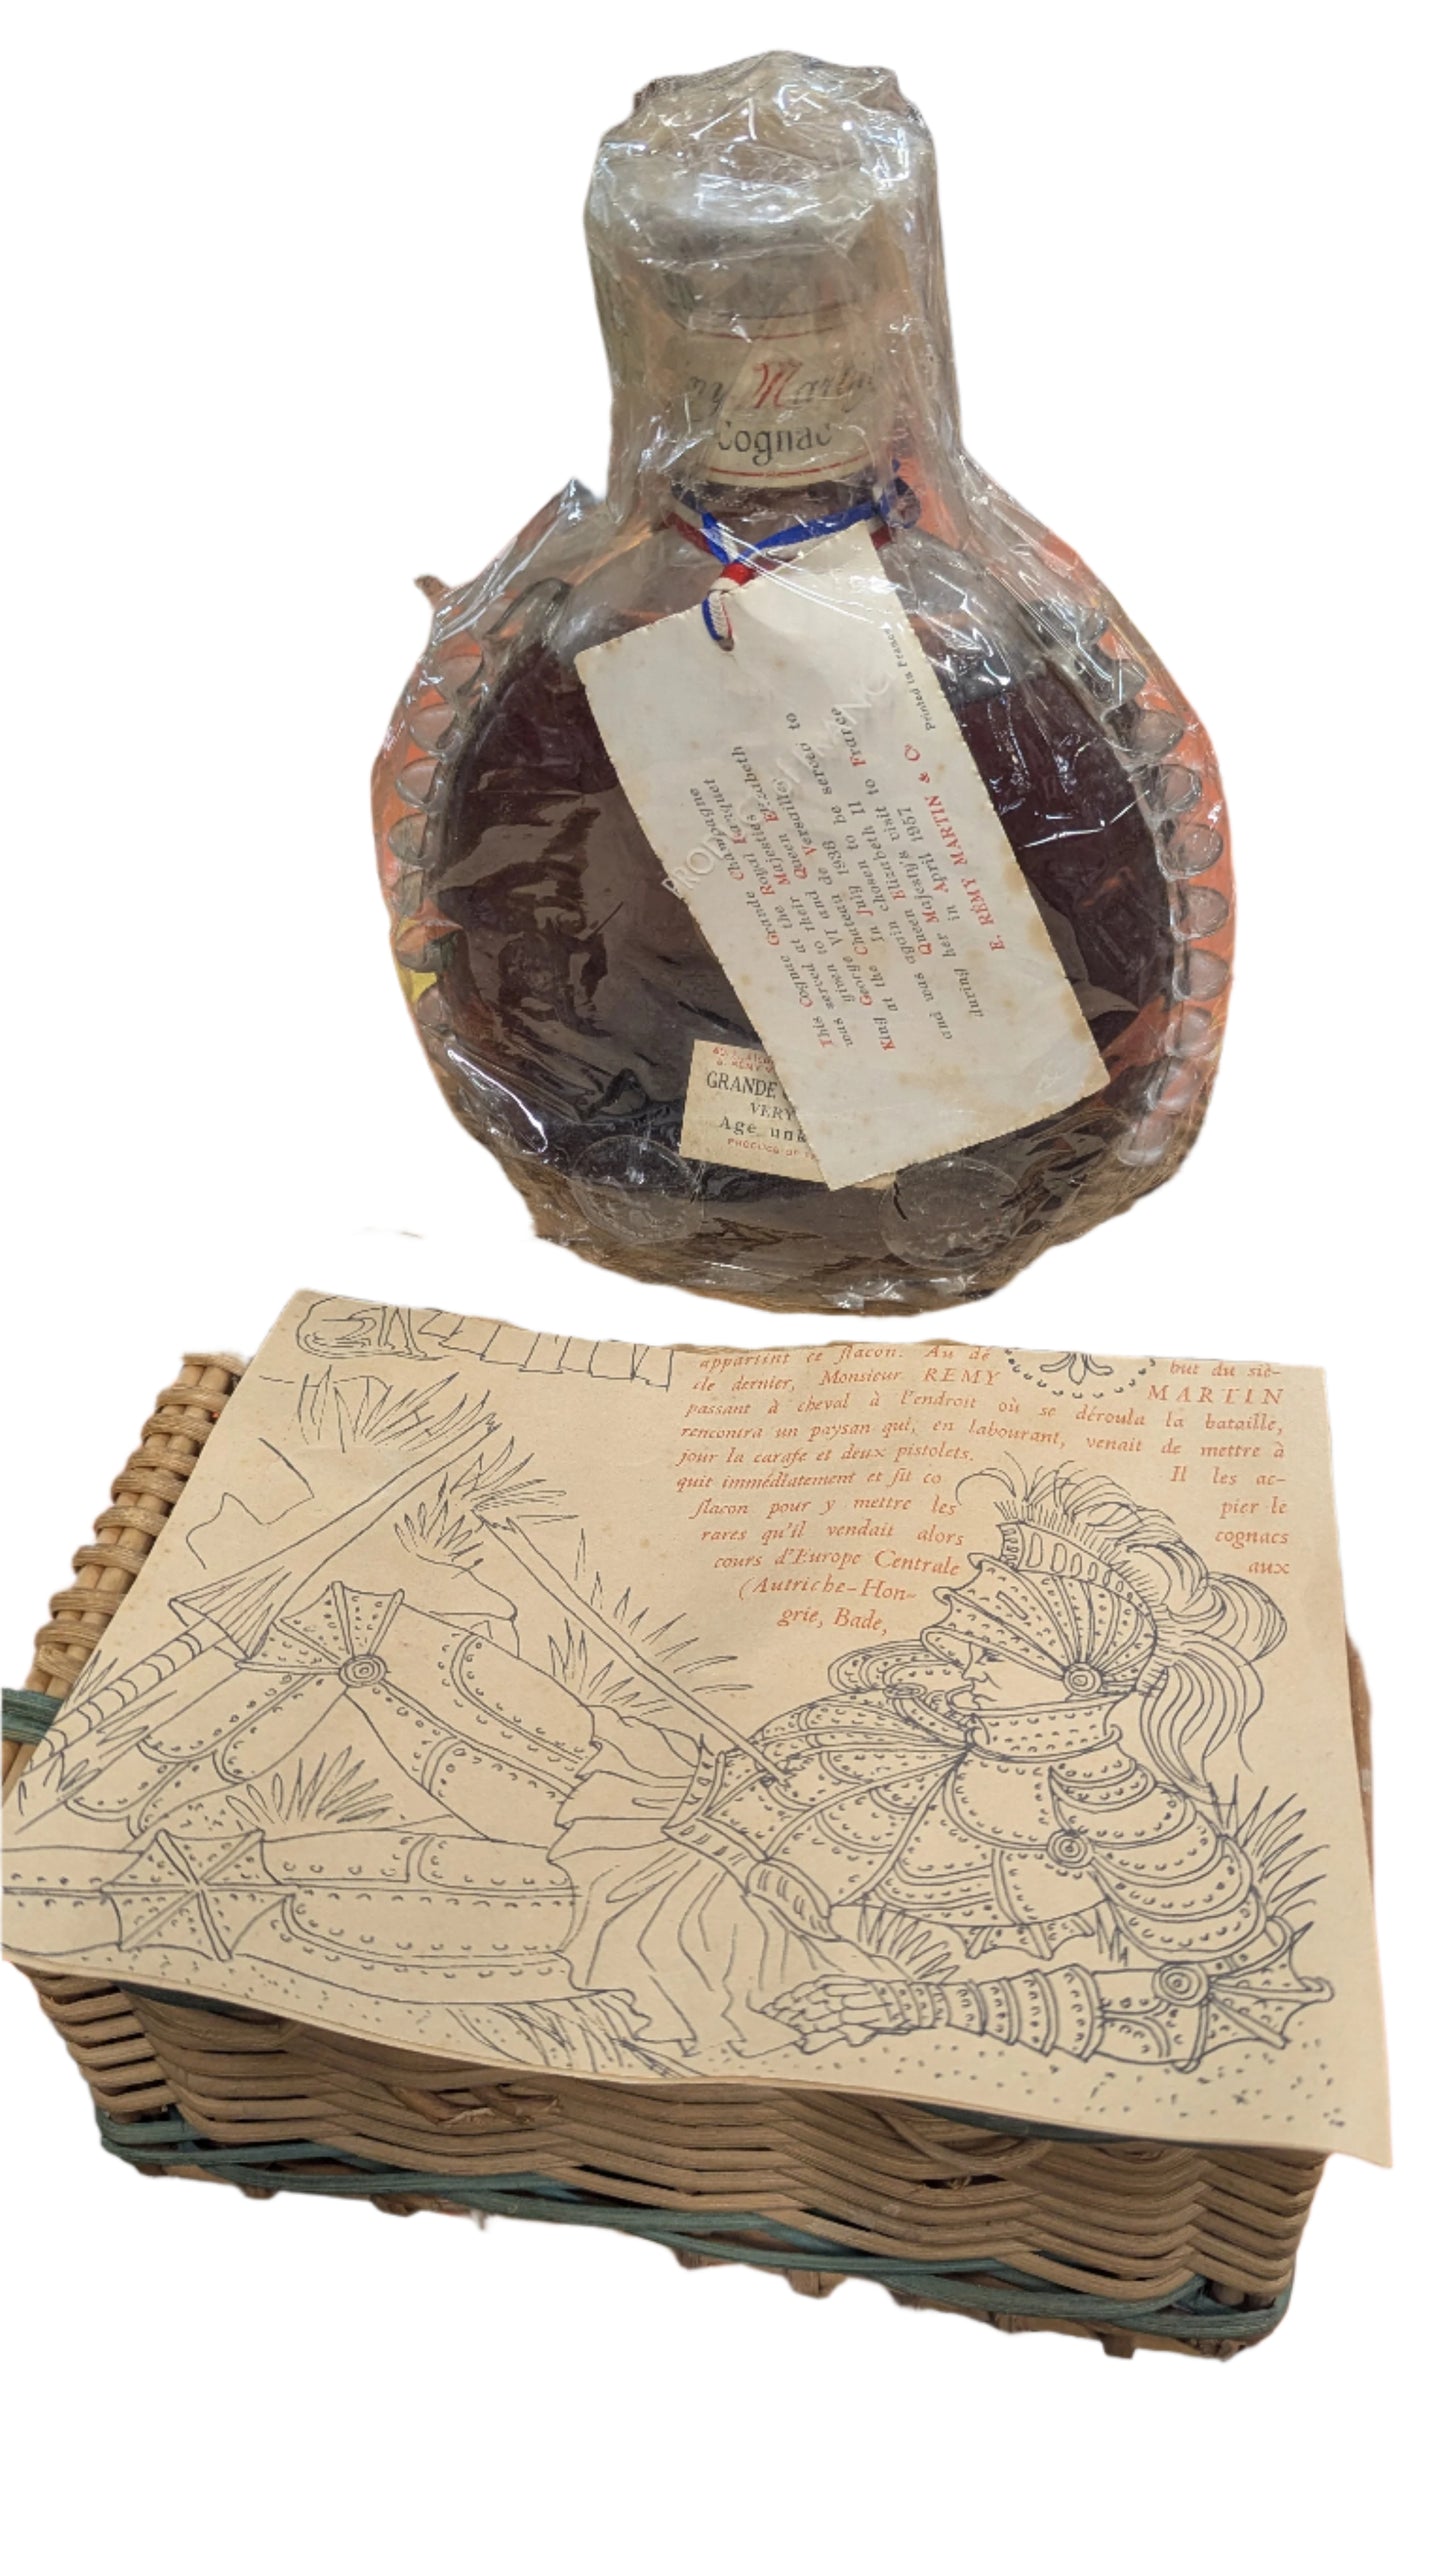 Martin
Cognac
This Cognac Grande Champagne
was served at the Royal Banquet
given to their Majesties
King George VI and Queen Elizabeth
at the Chateau de Versailles
In July 1938
and was again chosen to be served to
Queen Elizabeth II
during her Majesty's visit to France
in April 1957
E. RÉMY MARTIN & Co
Printed in France
GRANDE
VERY
Age
appartint ce flacon. Au dé but du siè-
cle dernier, Monsieur REMY MARTIN
passant à cheval à l'endroit où se déroula la bataille,
rencontra un paysan qui, en labourant, venait de mettre à
jour la carafe et deux pistolets. Il les ac-
quit immédiatement et fit co pier le
flacon pour y mettre les cognacs
rares qu'il vendait alors aux
cours d'Europe Centrale
(Autriche-Hon-
grie, Bade,